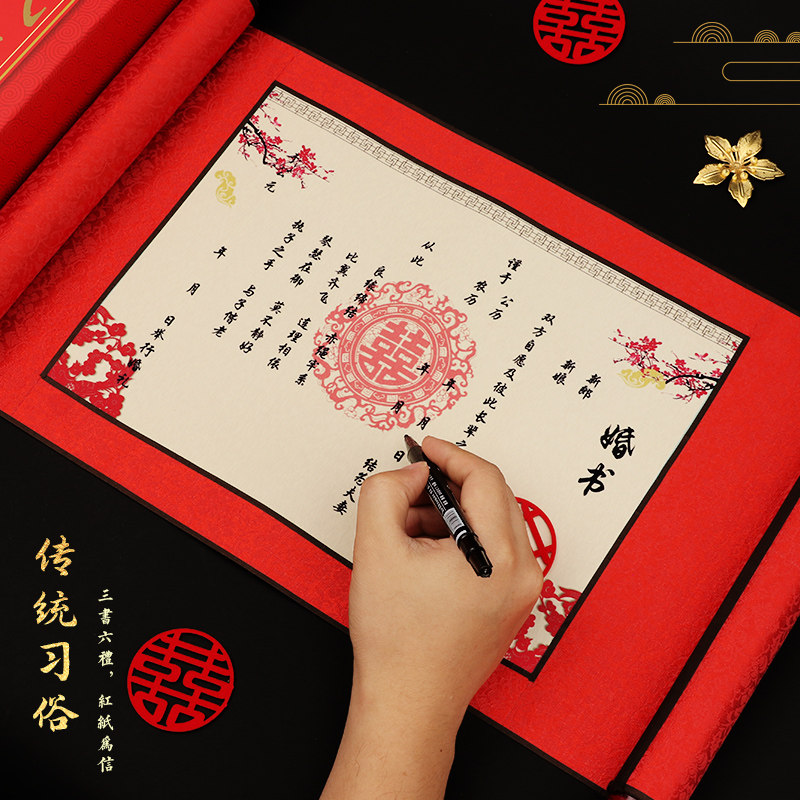 婚书
新郎
新娘
双方自愿及彼此长辈之
谨于 公历 年 月
农历 年 月 日
结为夫妻
从此
良缘缔结 赤绳早系
比翼齐飞 连理相依
琴瑟在御 莫不静好
执子之手 与子偕老
年 月 日举行婚礼
元
传统习俗
三書六禮，紅紙爲信